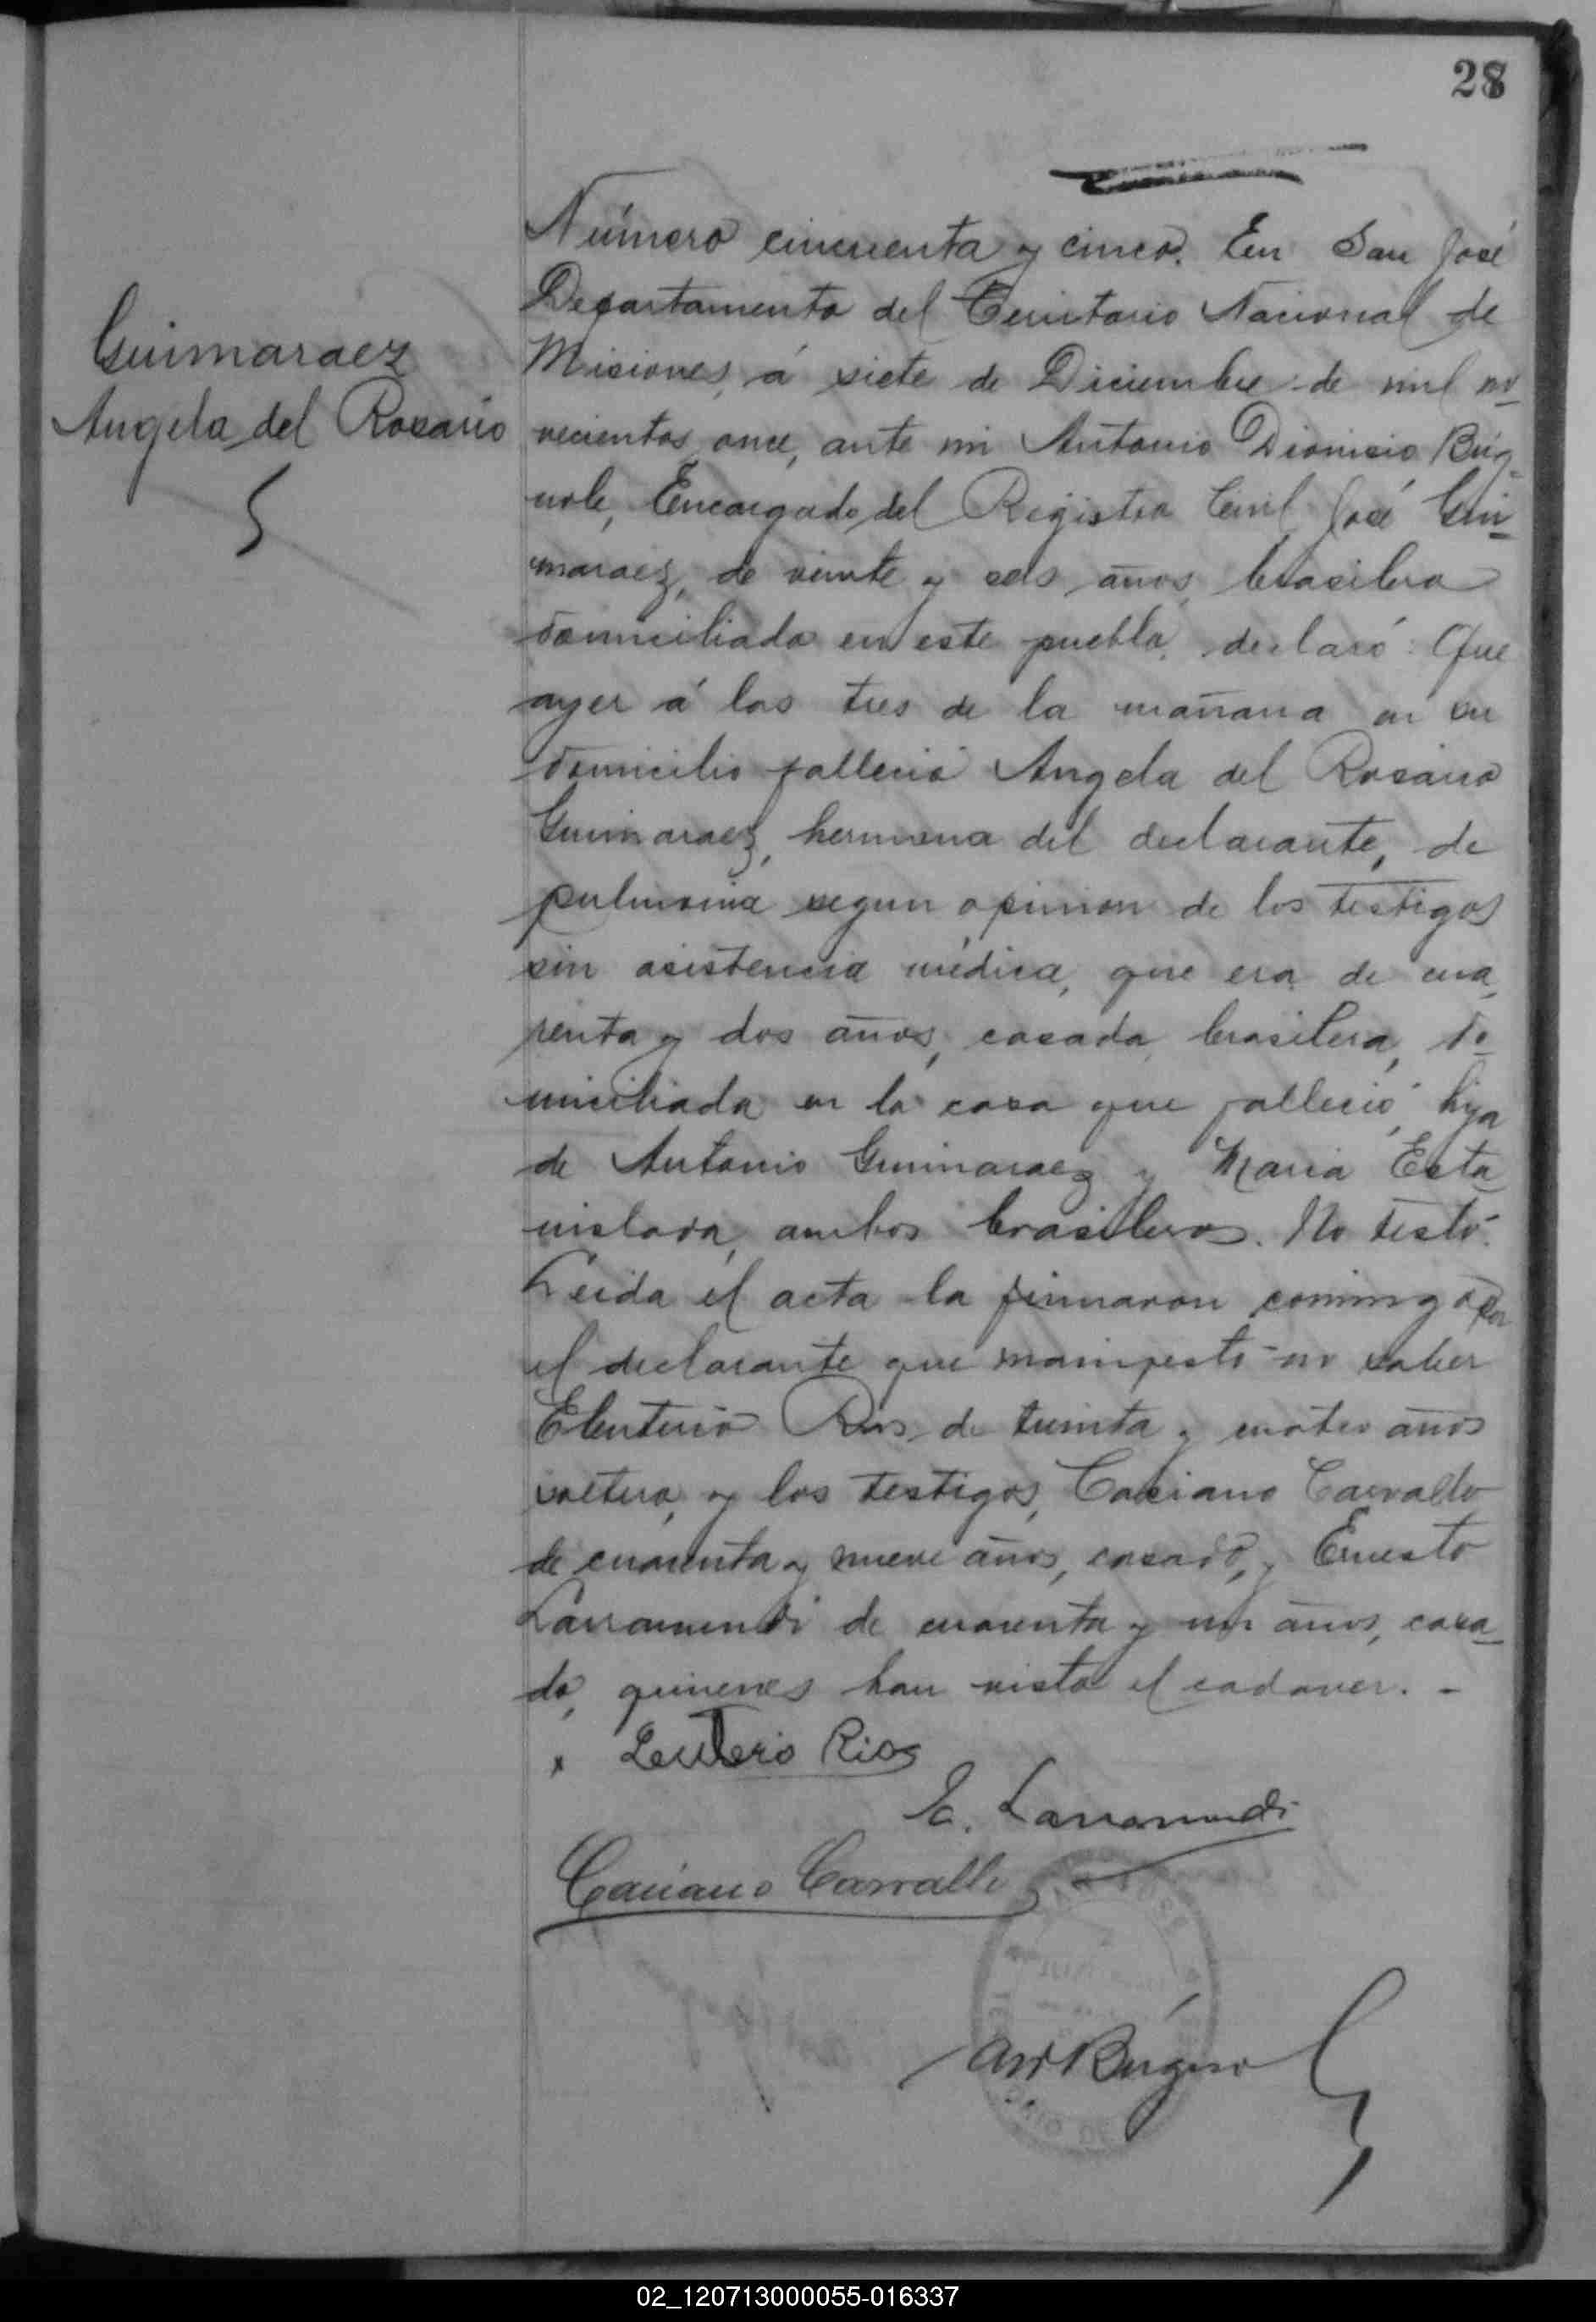 28
Guimaraez
Angela del Rosario
Número cincuenta y cinco. En San José
Departamento del Territorio Nacional de
Misiones, á siete de Diciembre de mil no-
vecientos once, ante mi Antonio Dionisio Bug-
nole, Encargado del Registro Civil, José Gui-
maraez, de veinte y seis años, brasilero
domiciliado en este pueblo, declaró: Que
ayer á las tres de la mañana en su
domicilio falleció Angela del Rosario
Guimaraez, hermana del declarante, de
pulmonia segun opinion de los testigos
sin asistencia médica, que era de cua-
renta y dos años, casada, brasilera, do-
miciliada en la casa que falleció, hija
de Antonio Guimaraez y Maria Esta-
nislada, ambos brasileros. No testó.
Leida el acta la firmaron conmigo por
el declarante que manifestó no saber
Eleuterio Rios de treinta y cuatro años
soltero, y los testigos, Casiano Carvallo
de cuarenta y nueve años, casado, y Ernesto
Larramendi de cuarenta y un años, casa-
do, quienes han visto el cadaver. -
x Leuterio Rios
E. Larramendi
Casiano Carvallo
02_120713000055-016337